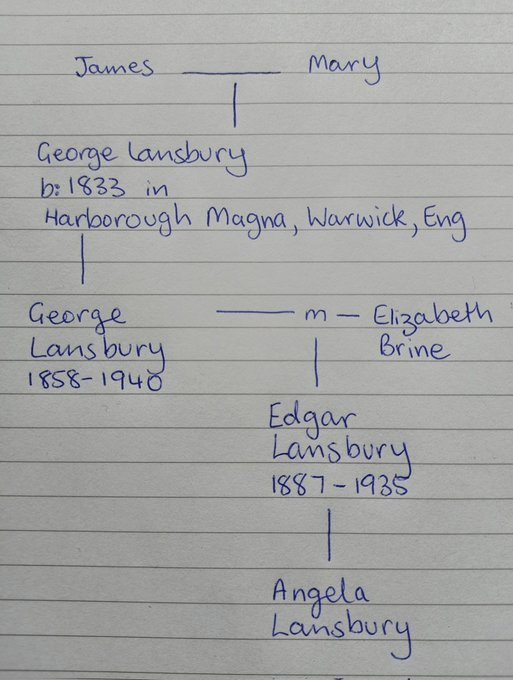 James Mary
George Lansbury
b: 1833 in
Harborough Magna, Warwick, Eng
George m Elizabeth
Lansbury Brine
1858-1940
Edgar
Lansbury
1887-1935
Angela
Lansbury